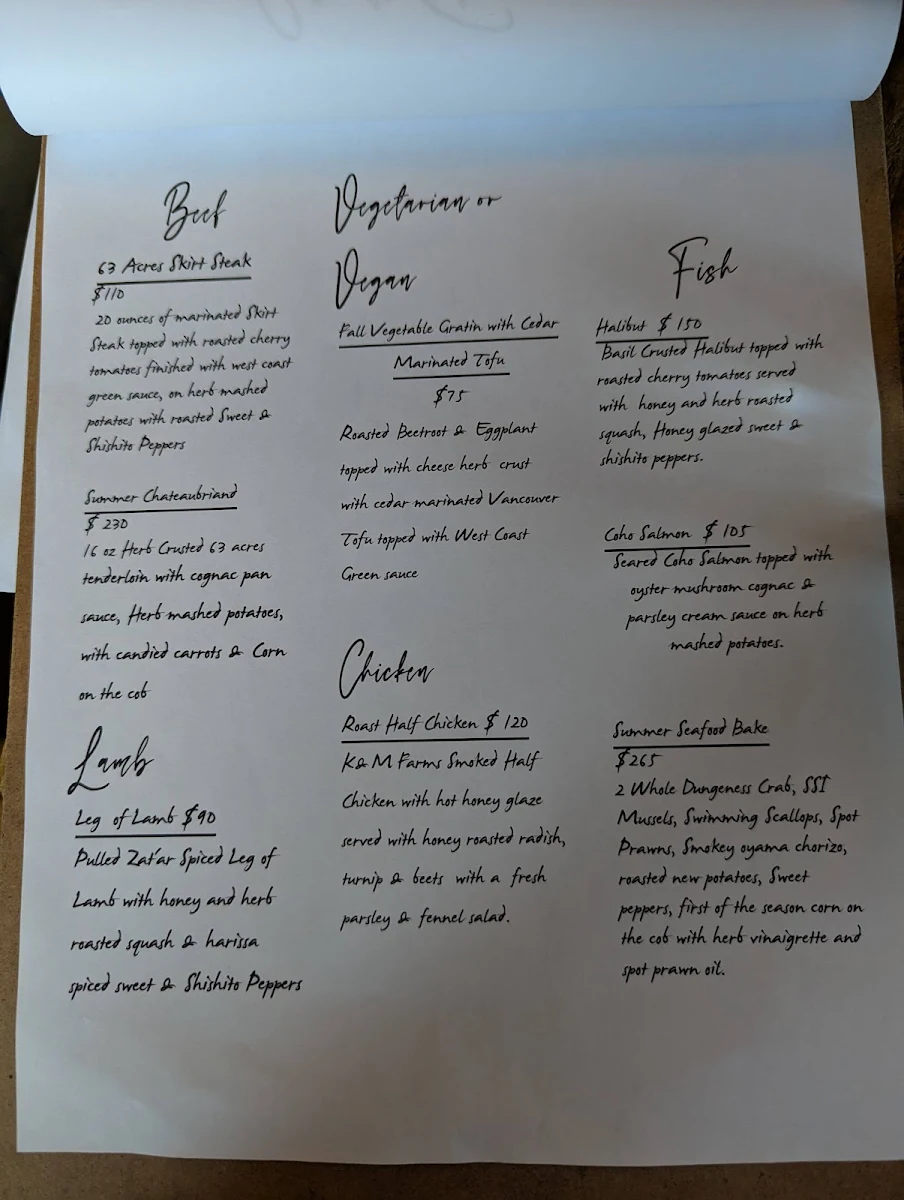 Beef
63 Acres Skirt Steak
$110
20 ounces of marinated Skirt
Steak topped with roasted cherry
tomatoes finished with west coast
green sauce, on herb mashed
potatoes with roasted Sweet &
Shishito Peppers
Summer Chateaubriand
$ 230
16 oz Herb Crusted 63 acres
tenderloin with cognac pan
sauce, Herb mashed potatoes,
with candied carrots & Corn
on the cob
Lamb
Leg of Lamb $90
Pulled Zat'ar Spiced Leg of
Lamb with honey and herb
roasted squash & harissa
spiced sweet & Shishito Peppers
Vegetarian or
Vegan
Fall Vegetable Gratin with Cedar
Marinated Tofu
$75
Roasted Beetroot & Eggplant
topped with cheese herb crust
with cedar marinated Vancouver
Tofu topped with West Coast
Green sauce
Chicken
Roast Half Chicken $ 120
K&M Farms Smoked Half
Chicken with hot honey glaze
served with honey roasted radish,
turnip & beets with a fresh
parsley & fennel salad.
Fish
Halibut $ 150
Basil Crusted Halibut topped with
roasted cherry tomatoes served
with honey and herb roasted
squash, Honey glazed sweet &
shishito peppers.
Coho Salmon $ 105
Seared Coho Salmon topped with
oyster mushroom cognac &
parsley cream sauce on herb
mashed potatoes.
Summer Seafood Bake
$265
2 Whole Dungeness Crab, SSI
Mussels, Swimming Scallops, Spot
Prawns, Smokey oyama chorizo,
roasted new potatoes, Sweet
peppers, first of the season corn on
the cob with herb vinaigrette and
spot prawn oil.